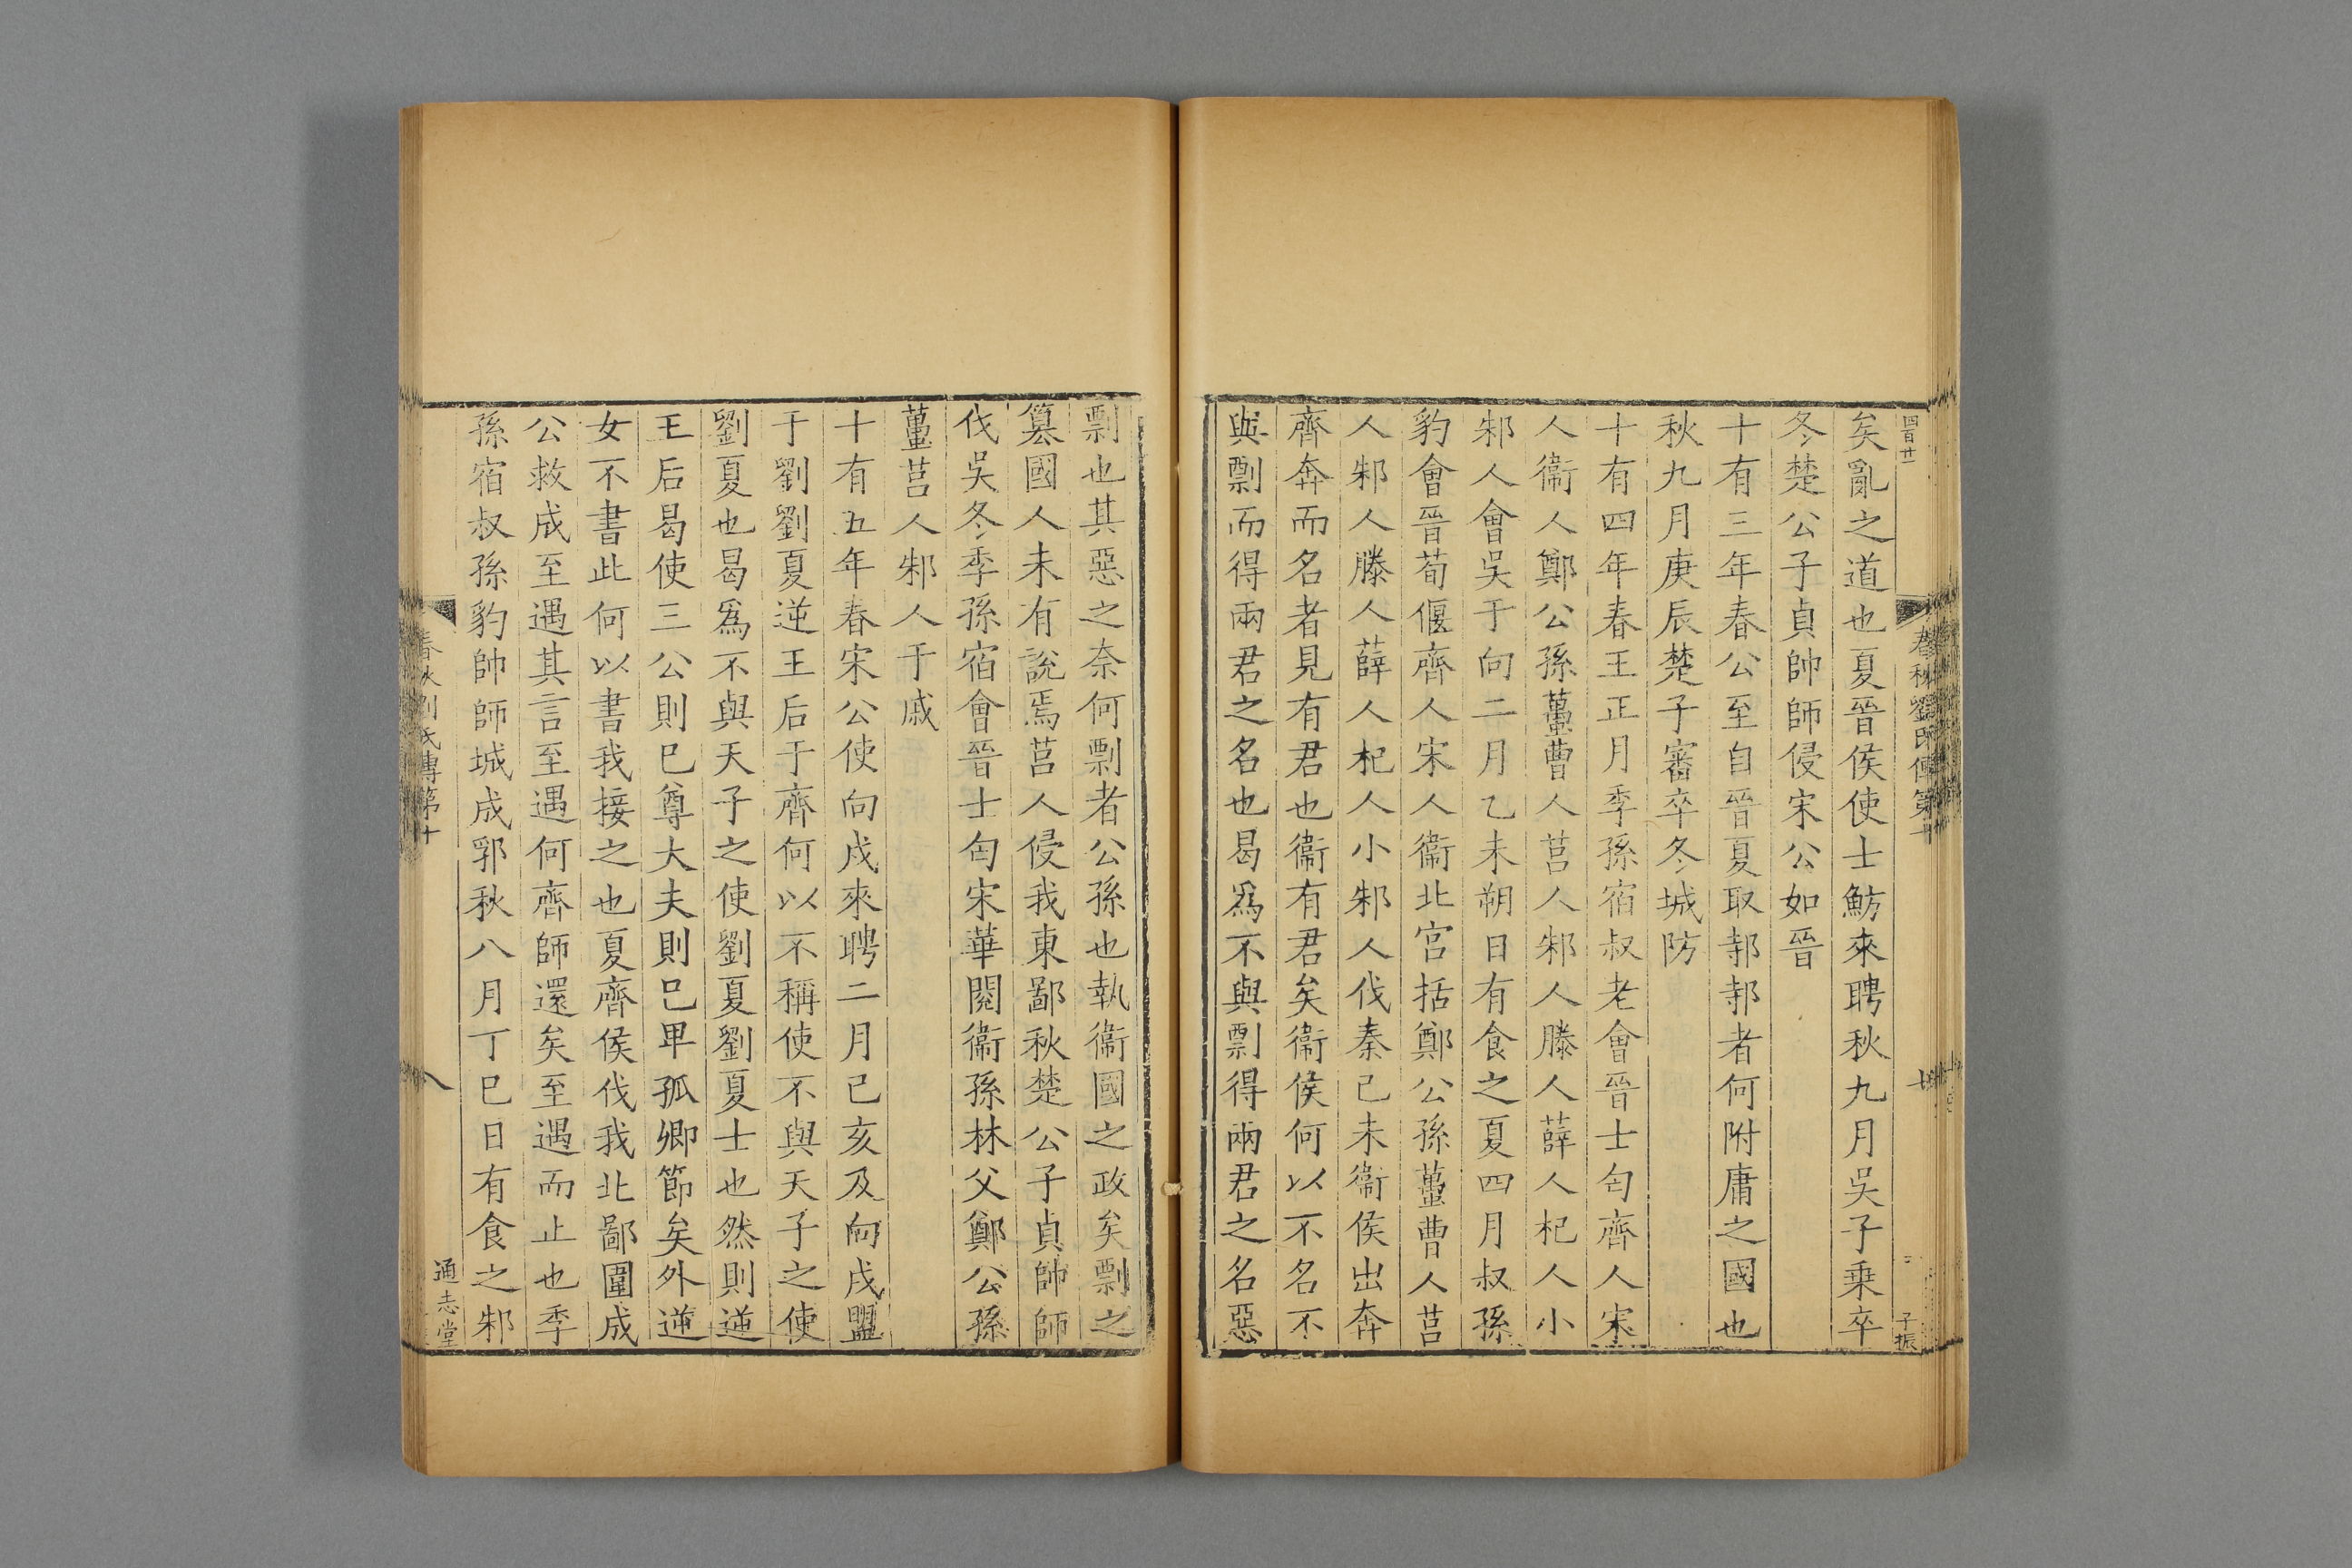 四百廿一
春秋劉氏傳第十
七
子振
矣亂之道也夏晉侯使士魴來聘秋九月吳子乗卒
冬楚公子貞帥師侵宋公如晉
十有三年春公至自晉夏取邿邿者何附庸之國也
秋九月庚辰楚子審卒冬城防
十有四年春王正月季孫宿叔老會晉士匄齊人宋
人衞人鄭公孫蠆曹人莒人邾人滕人薛人杞人小
邾人會吳于向二月乙未朔日有食之夏四月叔孫
豹會晉荀偃齊人宋人衞北宮括鄭公孫蠆曹人莒
人邾人滕人薛人杞人小邾人伐秦己未衞侯出奔
齊奔而名者見有君也衞有君矣衞侯何以不名不
與剽而得兩君之名也曷爲不與剽得兩君之名惡
剽也其惡之奈何剽者公孫也執衞國之政矣剽之
簒國人未有說焉莒人侵我東鄙秋楚公子貞帥師
伐吳冬季孫宿會晉士匄宋華閱衞孫林父鄭公孫
蠆莒人邾人于戚
十有五年春宋公使向戍來聘二月己亥及向戍盟
于劉劉夏逆王后于齊何以不稱使不與天子之使
劉夏也曷爲不與天子之使劉夏劉夏士也然則逆
王后曷使三公則巳尊大夫則巳卑孤卿節矣外逆
女不書此何以書我接之也夏齊侯伐我北鄙圍成
公救成至遇其言至遇何齊師還矣至遇而止也季
孫宿叔孫豹帥師城成郛秋八月丁巳日有食之邾
春秋劉氏傳第十
八
通志堂